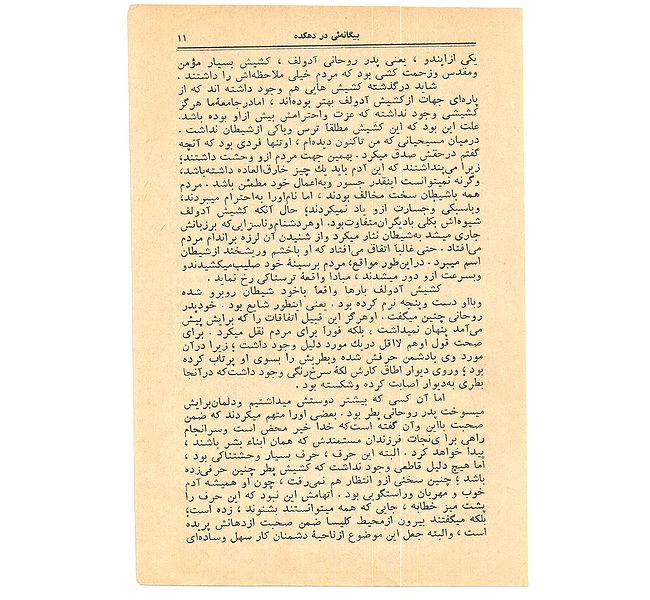 بیگانه‌ئی در دهکده ۱۱
یکی ازایندو ، یعنی پدر روحانی آدولف ، کشیش بسیار مؤمن
ومقدس وزحمت کشی بود که مردم خیلی ملاحظه‌اش را داشتند .
شاید درگذشته کشیش هایی هم وجود داشته اند که از
پاره‌ای جهات ازکشیش آدولف بهتر بوده‌اند ، امادرجامعهٔ‌ما هرگز
کشیشی وجود نداشته که عزت واحترامش بیش ازاو بوده باشد.
علت این بود که این کشیش مطلقاً ترس وباکی ازشیطان نداشت .
درمیان مسیحیانی که من تاکنون دیده‌ام ، اوتنها فردی بود که آنچه
گفتم درحقش صدق میکرد . بهمین جهت مردم ازو وحشت داشتند؛
زیرا می‌پنداشتند که این آدم باید یك چیز خارق‌العاده داشته‌باشد،
وگرنه نمیتوانست اینقدر جسور وبه‌اعمال خود مطمئن باشد . مردم
همه باشیطان سخت مخالف بودند ، اما نام‌اورا به‌احترام میبردند؛
وباسبکی وجسارت ازو یاد نمیکردند؛ حال آنکه کشیش آدولف
شیوه‌اش بکلی بادیگران‌متفاوت‌بود. اوهردشنام‌وناسزایی‌که برزبانش
جاری میشد به‌شیطان نثار میکرد واز شنیدن آن لرزه براندام مردم
می‌افتاد . حتی غالباً اتفاق می‌افتاد که او باخشم وریشخند ازشیطان
اسم میبرد . دراین‌طور مواقع، مردم برسینهٔ خود صلیب‌میکشیدندو
وبسرعت ازو دور میشدند ، مبادا واقعهٔ ترسناکی رخ نماید .
کشیش آدولف بارها واقعاً باخود شیطان روبرو شده
وبااو دست وپنجه نرم کرده بود . یعنی اینطور شایع بود . خودپدر
روحانی چنین میگفت . اوهرگز این قبیل اتفاقات را که برایش پیش
می‌آمد پنهان نمیداشت ، بلکه فوراً برای مردم نقل میکرد . برای
صحت قول اوهم لااقل دریك مورد دلیل وجود داشت ؛ زیرا درآن
مورد وی بادشمن حرفش شده وبطریش را بسوی او پرتاب کرده
بود ؛ وروی دیوار اطاق کارش لکهٔ سرخ‌رنگی وجود داشت‌که درآنجا
بطری به‌دیوار اصابت کرده وشکسته بود .
اما آن کسی که بیشتر دوستش میداشتیم ودلمان‌برایش
میسوخت پدر روحانی پطر بود . بعضی اورا متهم میکردند که ضمن
صحبت بااین وآن گفته است‌که خدا خیر محض است وسرانجام
راهی برا ی‌نجات فرزندان مستمندش که همان ابناء بشر باشند ،
پیدا خواهد کرد . البته این حرف ، حرف بسیار وحشتناکی بود ،
اما هیچ دلیل قاطعی وجود نداشت که کشیش پطر چنین حرفی‌زده
باشد ؛ چنین سخنی ازو انتظار هم نمی‌رفت ، چون او همیشه آدم
خوب و مهربان وراستگویی بود . اتهامش این نبود که این حرف را
پشت میز خطابه ، جایی که همه میتوانستند بشنوند ، زده است؛
بلکه میگفتند بیرون ازمحیط کلیسا ضمن صحبت ازدهانش پریده
است ، والبته جعل این موضوع ازناحیهٔ دشمنان کار سهل وساده‌ای